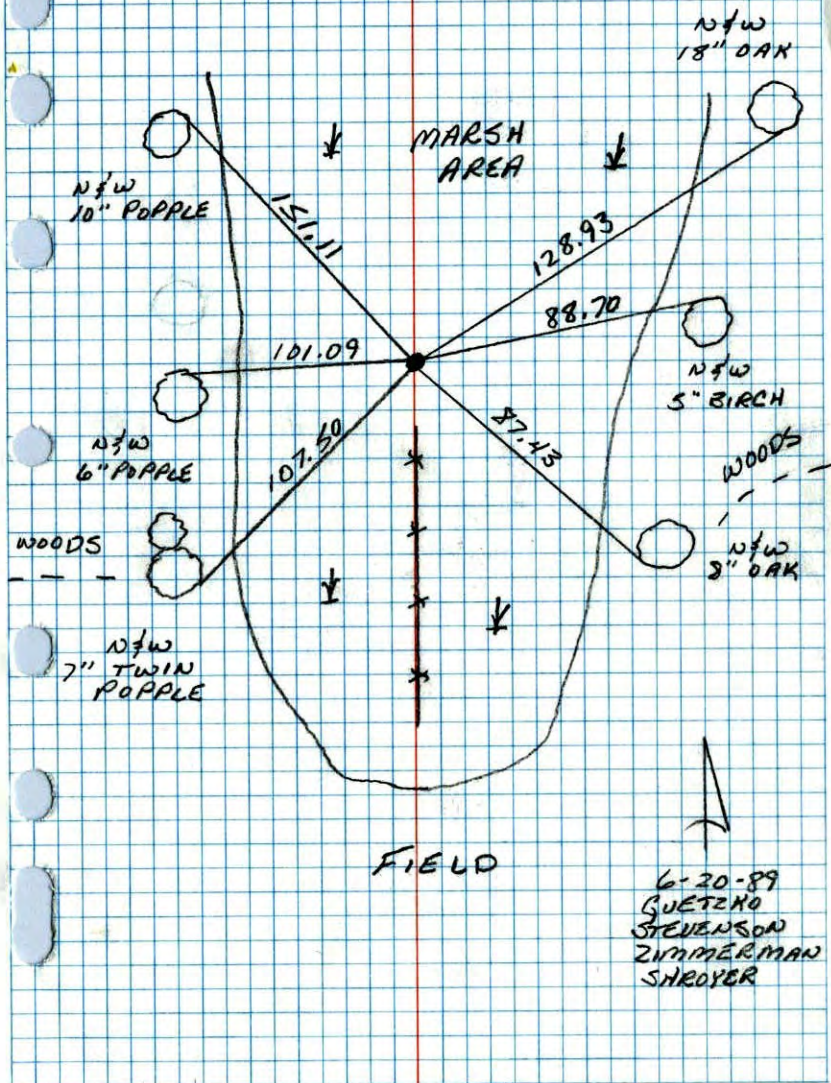 N&W
18" OAK
MARSH
AREA
N&W
10" POPPLE
151.11
128.93
88.70
101.09
N&W
5" BIRCH
N&W
6" POPPLE
107.50
87.43
WOODS
WOODS
N&W
8" OAK
N&W
7" TWIN
POPPLE
FIELD
6-20-89
GUETZKO
STEVENSON
ZIMMERMAN
SHROYER